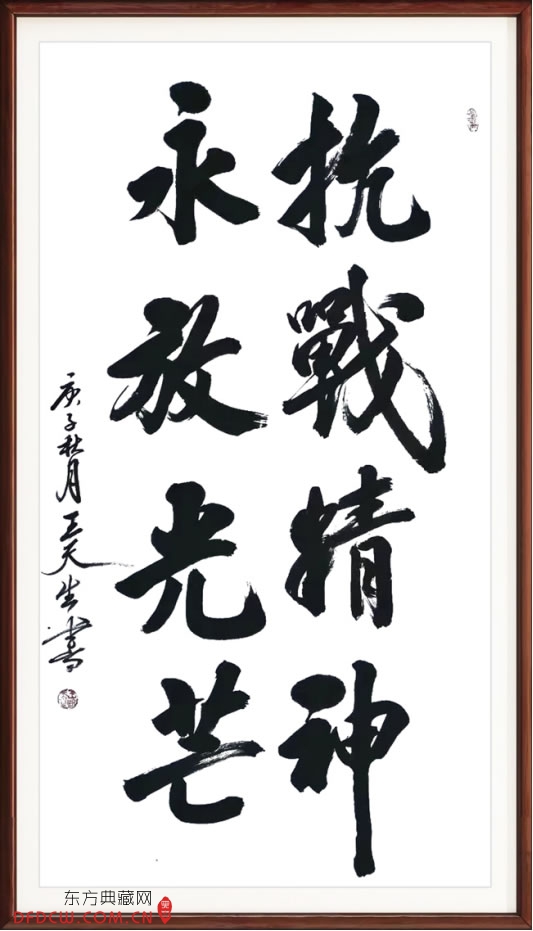 抗戰精神
永放光芒
庚子秋月王天生書
东方典藏网
DFDCW.COM.CN